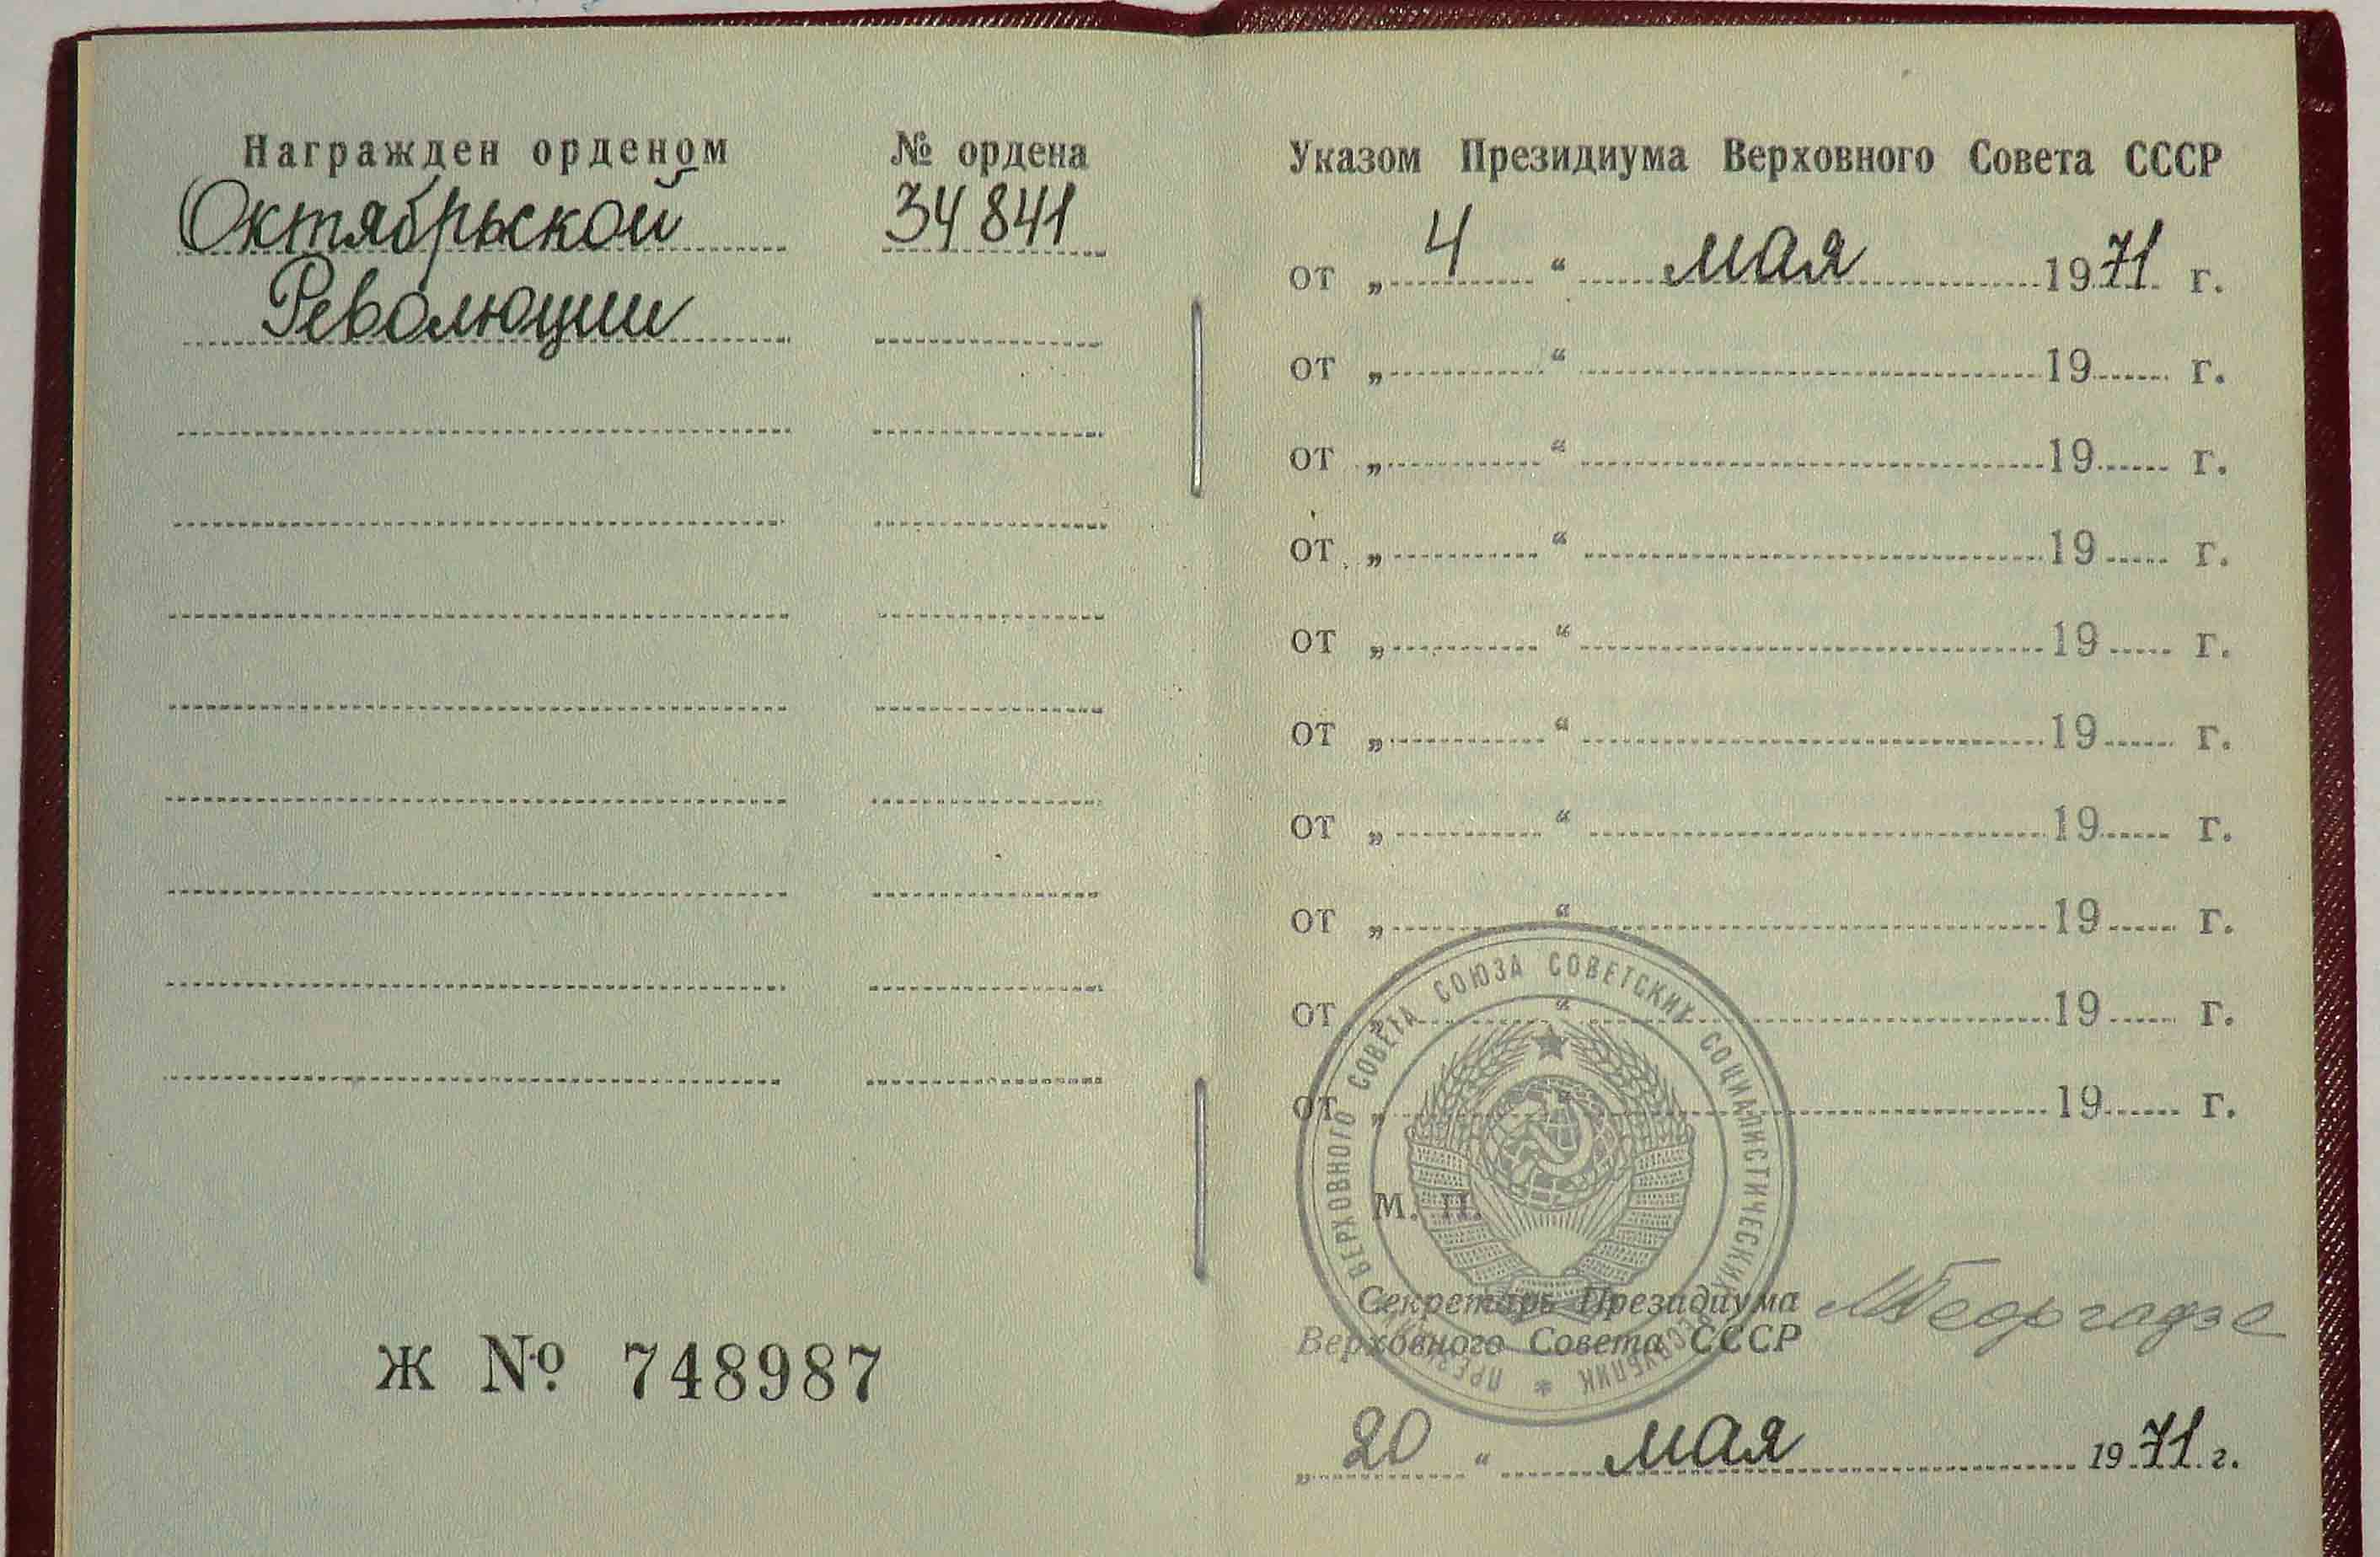 Награжден орденом
№ ордена
Октябрьской
34841
Революции
Ж № 748987
Указом Президиума Верховного Совета СССР
от „ 4 “ мая 1971 г.
от „ “ 19 г.
от „ “ 19 г.
от „ “ 19 г.
от „ “ 19 г.
от „ “ 19 г.
от „ “ 19 г.
от „ “ 19 г.
от „ “ 19 г.
от „ “ 19 г.
М. П.
ПРЕЗИДИУМ ВЕРХОВНОГО СОВЕТА СОЮЗА СОВЕТСКИХ СОЦИАЛИСТИЧЕСКИХ РЕСПУБЛИК *
Секретарь Президиума
Верховного Совета СССР
МГеоргадзе
„ 20 “ мая 1971 г.